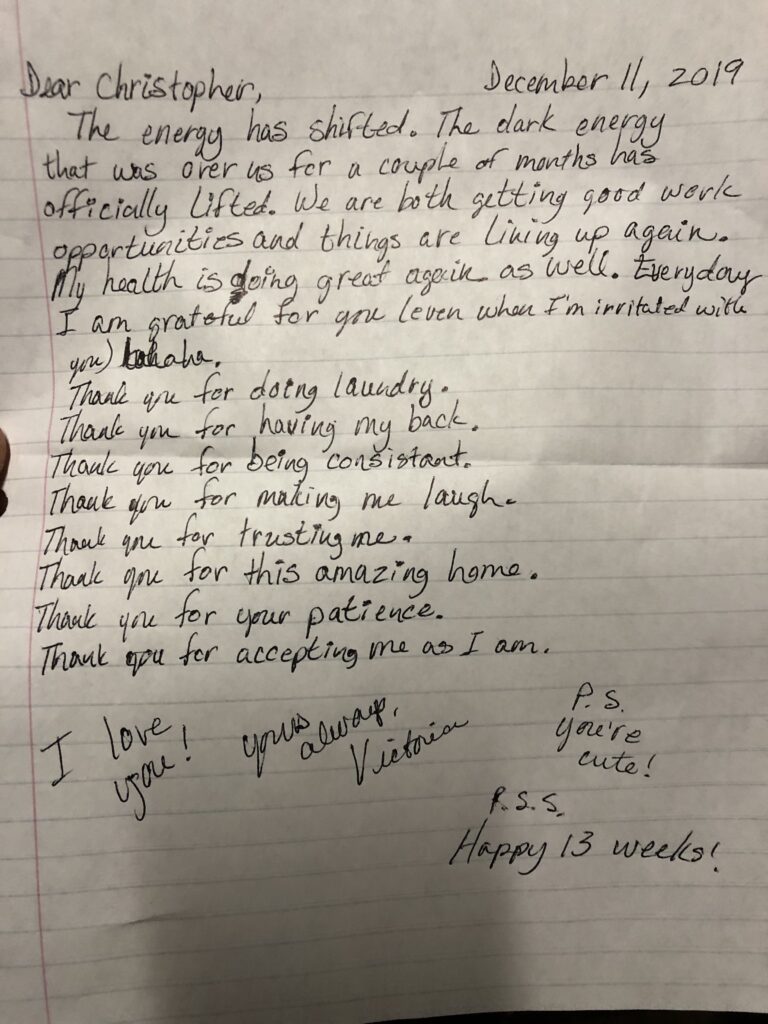 Dear Christopher, December 11, 2019
The energy has shifted. The dark energy
that was over us for a couple of months has
officially lifted. We are both getting good work
opportunities and things are lining up again.
My health is doing great again as well. Everyday
I am grateful for you (even when I'm irritated with
you) hahaha.
Thank you for doing laundry.
Thank you for having my back.
Thank you for being consistant.
Thank you for making me laugh.
Thank you for trusting me.
Thank you for this amazing home.
Thank you for your patience.
Thank you for accepting me as I am.
I love
you!
yours
always,
Victoria
P.S.
you're
cute!
P.S.S.
Happy 13 weeks!